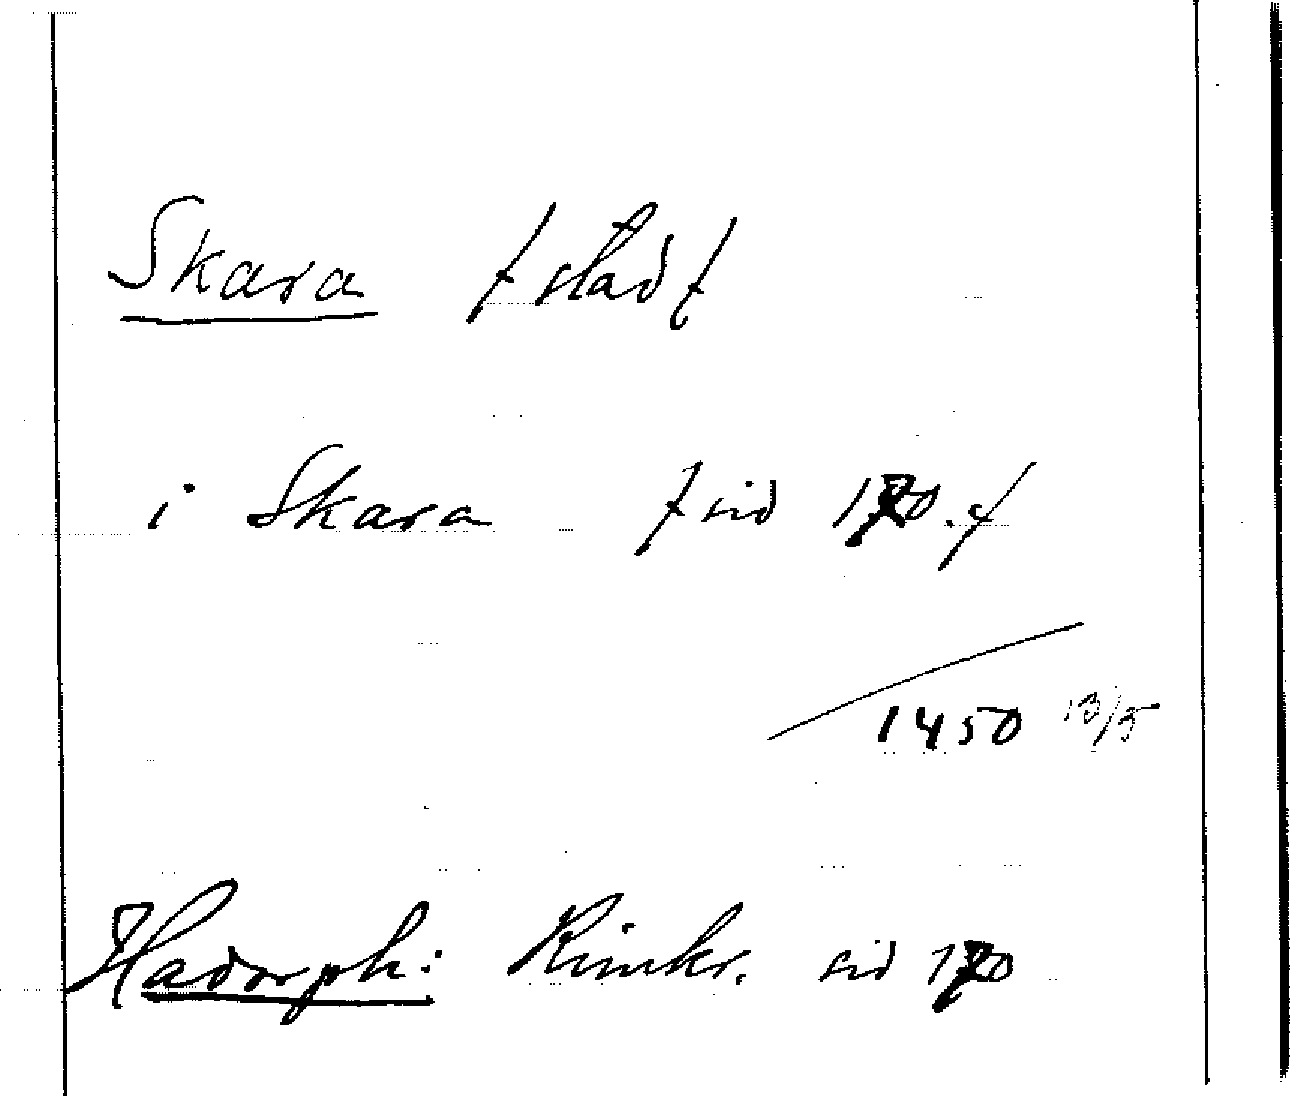 Skara /stad/
i Skara /sid 170./
1450 13/5
Hadorph: Rimkr. sid 170